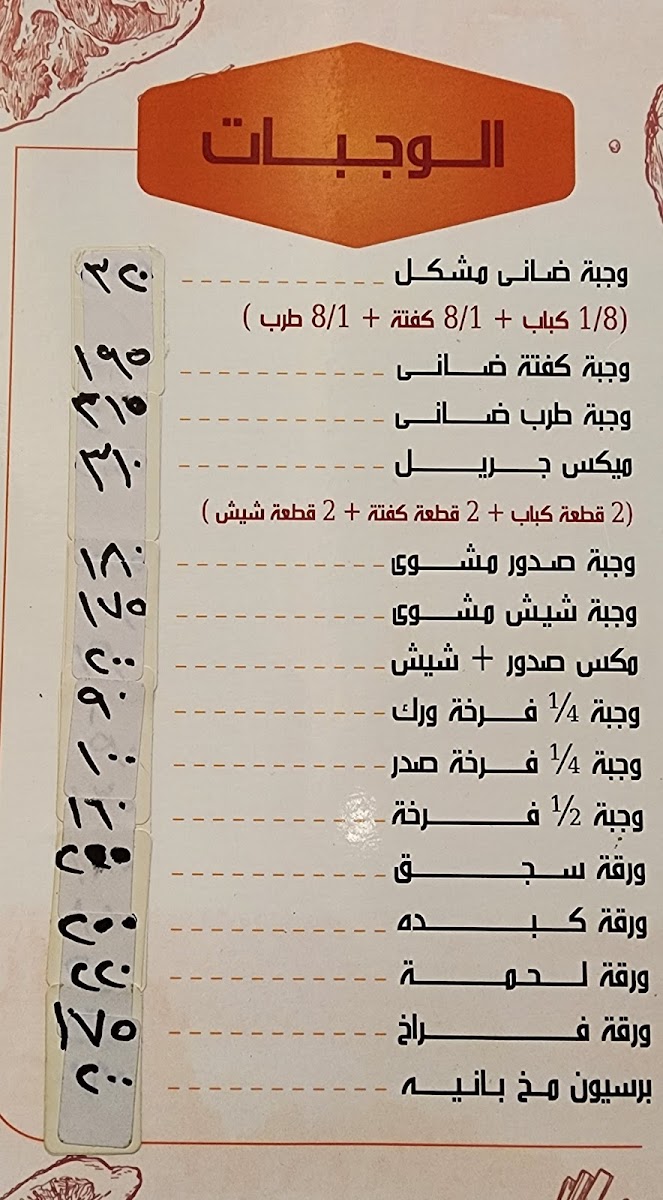 الوجبات
وجبة ضانى مشكل ٣٢٠
(1/8 كباب + 8/1 كفتة + 8/1 طرب )
وجبة كفتة ضانى ١٩٥
وجبة طرب ضانى ٣١٥
ميكس جريل ٣١٠
(2 قطعة كباب + 2 قطعة كفتة + 2 قطعة شيش )
وجبة صدور مشوى
وجبة شيش مشوى ١٧٥
مكس صدور + شيش ٢٠٠
وجبة 1/4 فرخة ورك ٩٠
وجبة 1/4 فرخة صدر ١٠٠
وجبة 1/2 فرخة
ورقة سجق
ورقة كبده ٢٠٠
ورقة لحمة ٢٢٠
ورقة فراخ ١٧٥
برسيون مخ بانيه ٢٠٠